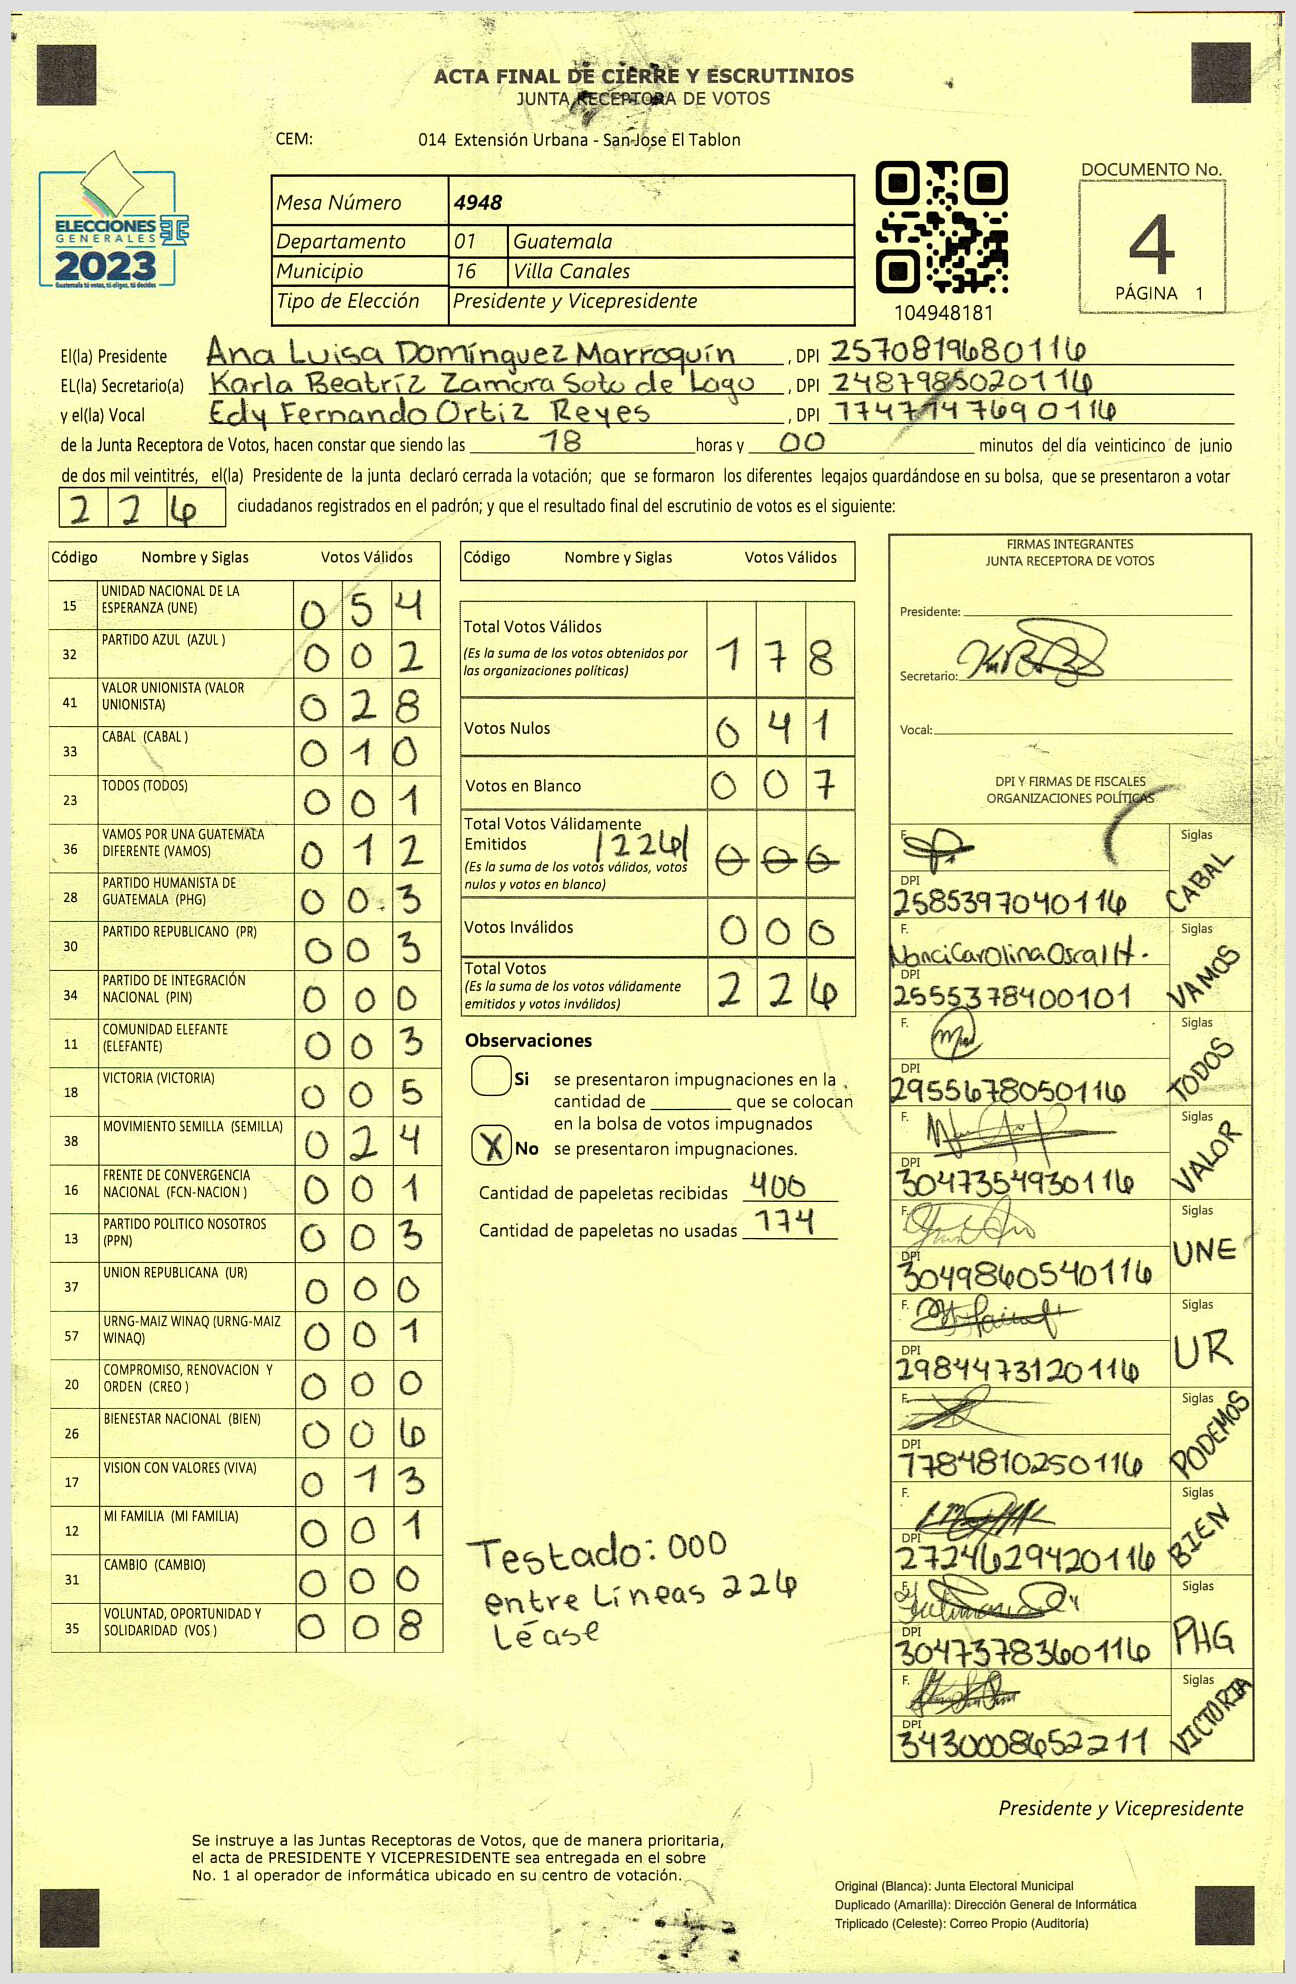 ACTA FINAL DE CIERRE Y ESCRUTINIOS
JUNTA RECEPTORA DE VOTOS
CEM: 014 Extensión Urbana - San Jose El Tablon
ELECCIONES
GENERALES
2023
Guatemala tú votas, tú eliges, tú decides
Mesa Número 4948
Departamento 01 Guatemala
Municipio 16 Villa Canales
Tipo de Elección Presidente y Vicepresidente
104948181
DOCUMENTO No.
4
PÁGINA 1
El(la) Presidente Ana Luisa Domínguez Marroquín, DPI 2570819680116
EL(la) Secretario(a) Karla Beatríz Zamora Soto de Lago, DPI 2487985020116
y el(la) Vocal Edy Fernando Ortiz Reyes, DPI 1747147690116
de la Junta Receptora de Votos, hacen constar que siendo las 18 horas y 00 minutos del día veinticinco de junio
de dos mil veintitrés, el(la) Presidente de la junta declaró cerrada la votación; que se formaron los diferentes legajos guardándose en su bolsa, que se presentaron a votar
226 ciudadanos registrados en el padrón; y que el resultado final del escrutinio de votos es el siguiente:
Código Nombre y Siglas Votos Válidos
15 UNIDAD NACIONAL DE LA ESPERANZA (UNE) 0 5 4
32 PARTIDO AZUL (AZUL ) 0 0 2
41 VALOR UNIONISTA (VALOR UNIONISTA) 0 2 8
33 CABAL (CABAL ) 0 1 0
23 TODOS (TODOS) 0 0 1
36 VAMOS POR UNA GUATEMALA DIFERENTE (VAMOS) 0 1 2
28 PARTIDO HUMANISTA DE GUATEMALA (PHG) 0 0 3
30 PARTIDO REPUBLICANO (PR) 0 0 3
34 PARTIDO DE INTEGRACIÓN NACIONAL (PIN) 0 0 0
11 COMUNIDAD ELEFANTE (ELEFANTE) 0 0 3
18 VICTORIA (VICTORIA) 0 0 5
38 MOVIMIENTO SEMILLA (SEMILLA) 0 2 4
16 FRENTE DE CONVERGENCIA NACIONAL (FCN-NACION ) 0 0 1
13 PARTIDO POLITICO NOSOTROS (PPN) 0 0 3
37 UNION REPUBLICANA (UR) 0 0 0
57 URNG-MAIZ WINAQ (URNG-MAIZ WINAQ) 0 0 1
20 COMPROMISO, RENOVACION Y ORDEN (CREO ) 0 0 0
26 BIENESTAR NACIONAL (BIEN) 0 0 6
17 VISION CON VALORES (VIVA) 0 1 3
12 MI FAMILIA (MI FAMILIA) 0 0 1
31 CAMBIO (CAMBIO) 0 0 0
35 VOLUNTAD, OPORTUNIDAD Y SOLIDARIDAD (VOS ) 0 0 8
Código Nombre y Siglas Votos Válidos
Total Votos Válidos 1 7 8
(Es la suma de los votos obtenidos por
las organizaciones políticas)
Votos Nulos 0 4 1
Votos en Blanco 0 0 7
Total Votos Válidamente
Emitidos /226/ 0 0 0
(Es la suma de los votos válidos, votos
nulos y votos en blanco)
Votos Inválidos 0 0 0
Total Votos 2 2 6
(Es la suma de los votos válidamente
emitidos y votos inválidos)
Observaciones
Si se presentaron impugnaciones en la
cantidad de ________ que se colocan
en la bolsa de votos impugnados
X No se presentaron impugnaciones.
Cantidad de papeletas recibidas 400
Cantidad de papeletas no usadas 174
Testado: 000
entre Líneas 226
Léase
FIRMAS INTEGRANTES
JUNTA RECEPTORA DE VOTOS
Presidente:
Secretario:
Vocal:
DPI Y FIRMAS DE FISCALES
ORGANIZACIONES POLÍTICAS
F. Siglas
DPI
2585397040116 CABAL
F. Nanci Carolina Oscal H. Siglas
DPI
2555378400101 VAMOS
F. Siglas
DPI
2955678050116 TODOS
F. Siglas
DPI
3047354930116 VALOR
F. Siglas
DPI
3049860540116 UNE
F. Siglas
DPI
2984473120116 UR
F. Siglas
DPI
1784810250116 PODEMOS
F. Siglas
DPI
2724629420116 BIEN
F. Siglas
DPI
3047378360116 PHG
F. Siglas
DPI
3430008652211 VICTORIA
Presidente y Vicepresidente
Se instruye a las Juntas Receptoras de Votos, que de manera prioritaria,
el acta de PRESIDENTE Y VICEPRESIDENTE sea entregada en el sobre
No. 1 al operador de informática ubicado en su centro de votación.
Original (Blanca): Junta Electoral Municipal
Duplicado (Amarilla): Dirección General de Informática
Triplicado (Celeste): Correo Propio (Auditoría)